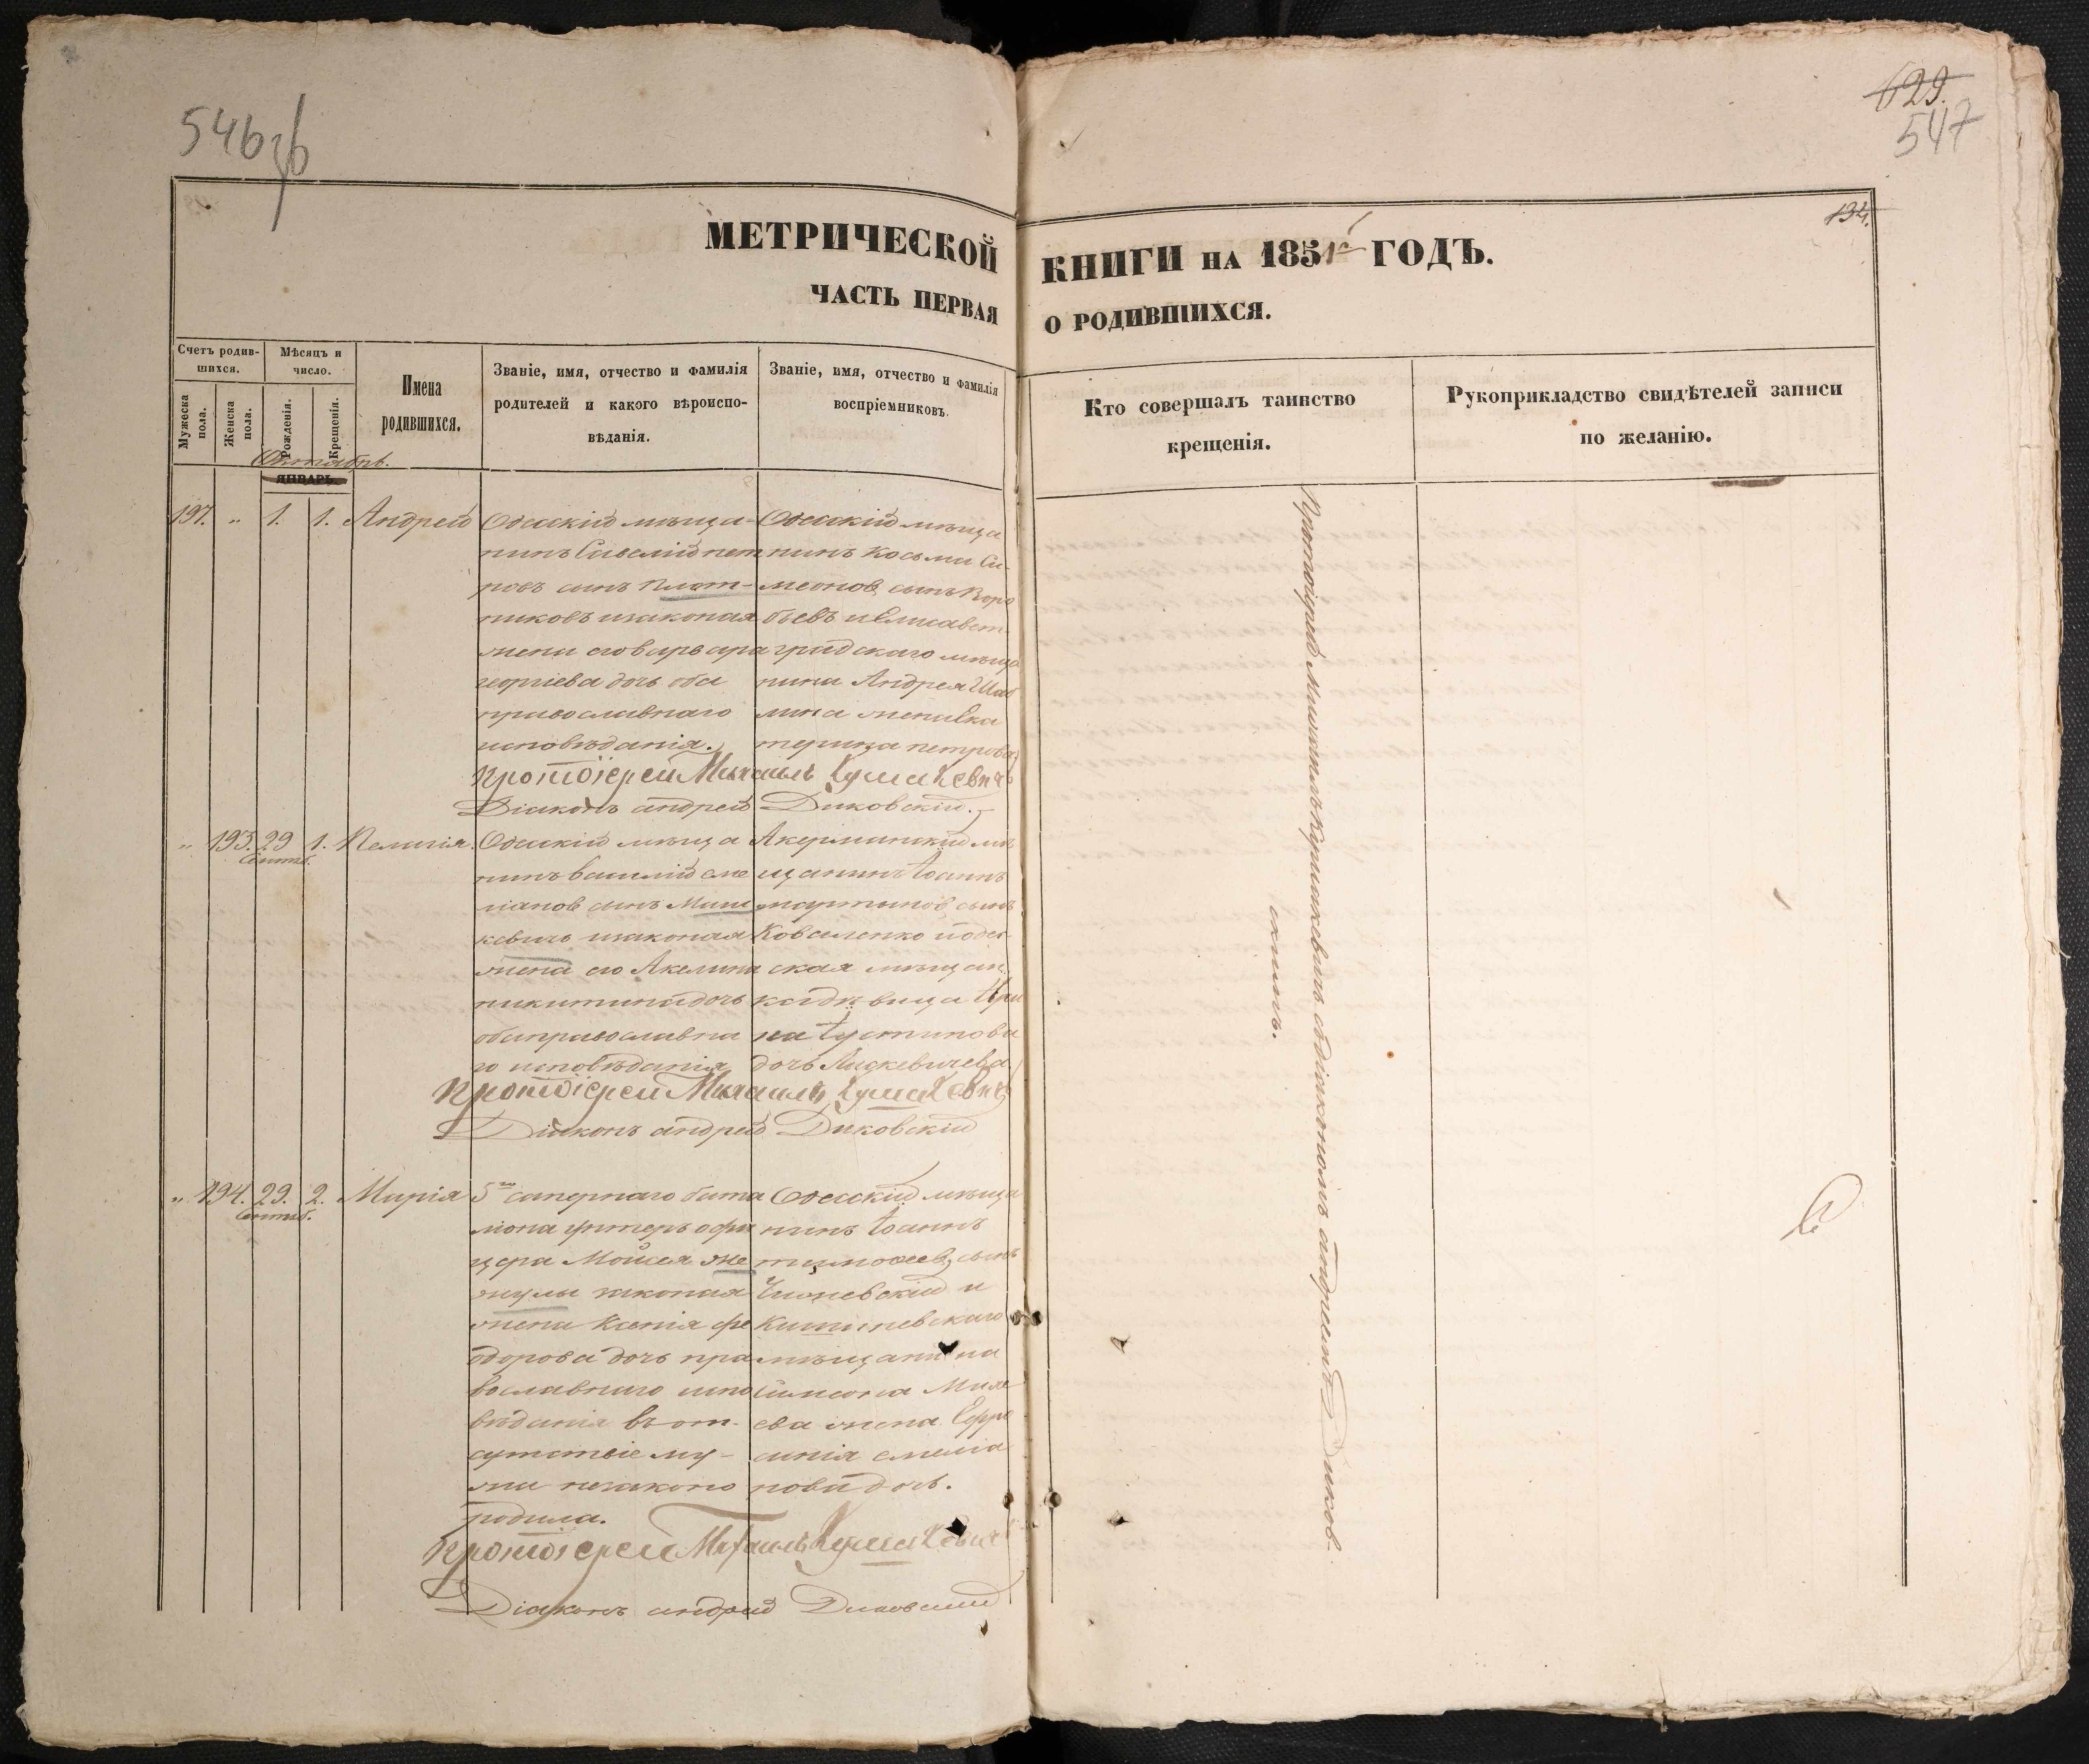 546 об
629.
547
134.
МЕТРИЧЕСКОЙ КНИГИ НА 1851й ГОДЪ.
ЧАСТЬ ПЕРВАЯ О РОДИВШИХСЯ.
Счетъ родив-
шихся.
Мужеска пола.
Женска пола.
Мѣсяцъ и
число.
Рожденія.
Крещенія.
Имена
родившихся.
Званіе, имя, отчество и фамилія
родителей и какого вѣроиспо-
вѣданія.
Званіе, имя, отчество и фамилія
воспріемниковъ.
Кто совершалъ таинство
крещенія.
Рукоприкладство свидѣтелей записи
по желанію.
Октябрь.
ЯНВАРЬ.
197. „ 1. 1. Андрей
Одесскій мѣща-
нинъ Савелій пет
ровъ сынъ Плот-
никовъ изаконая
жена его варвара
георгіева дочь оба
православнаго
исповѣданія.
Одесскій мѣща
нинъ Косьма Си-
меоновъ сынъ Воро
бьевъ и Елисавет-
градскаго мѣща
нина Андрея
жена Ека
терина петрова
Протоіерей Михаилъ
Діаконъ андрей Диковскій.
„ 193. 29 1. Пелагія.
Сентяб.
Одескій мѣща
нинъ василій еме
ліановъ сынъ
кевичъ изаконая
жена его Акелина
никитина дочь
обаправославна
го исповѣданія
Акерманскій мѣ
щанинъ Іоаннъ
мартиновъ сынъ
Коваленко иодес-
ская мѣщан
ка дѣвица Ири
на Іустинова
дочь
Протоіерей Михаилъ
Діаконъ андрей Диковскій
„ 194. 29. 2. Марія
Сентяб.
5го сапернаго бата
ліона унтеръ офи
цера Мойсея же
жулы законая
жена Ксенія фе
одорова дочь пра
вославнаго испо
вѣданія въ от-
сутствіе му-
жа незаконо
родила.
Одесскій мѣща
нинъ Іоаннъ
тимофеевъ сынъ
и
Кишиневскаго
мѣщанина
Симеона Михе
ева жена Евфро
синія емелиа
нова дочь.
Протоіерей Михаилъ
Діаконъ андрей Диковскій
Протоіерей Михаилъ съ діакономъ андреемъ Диков-
скимъ.